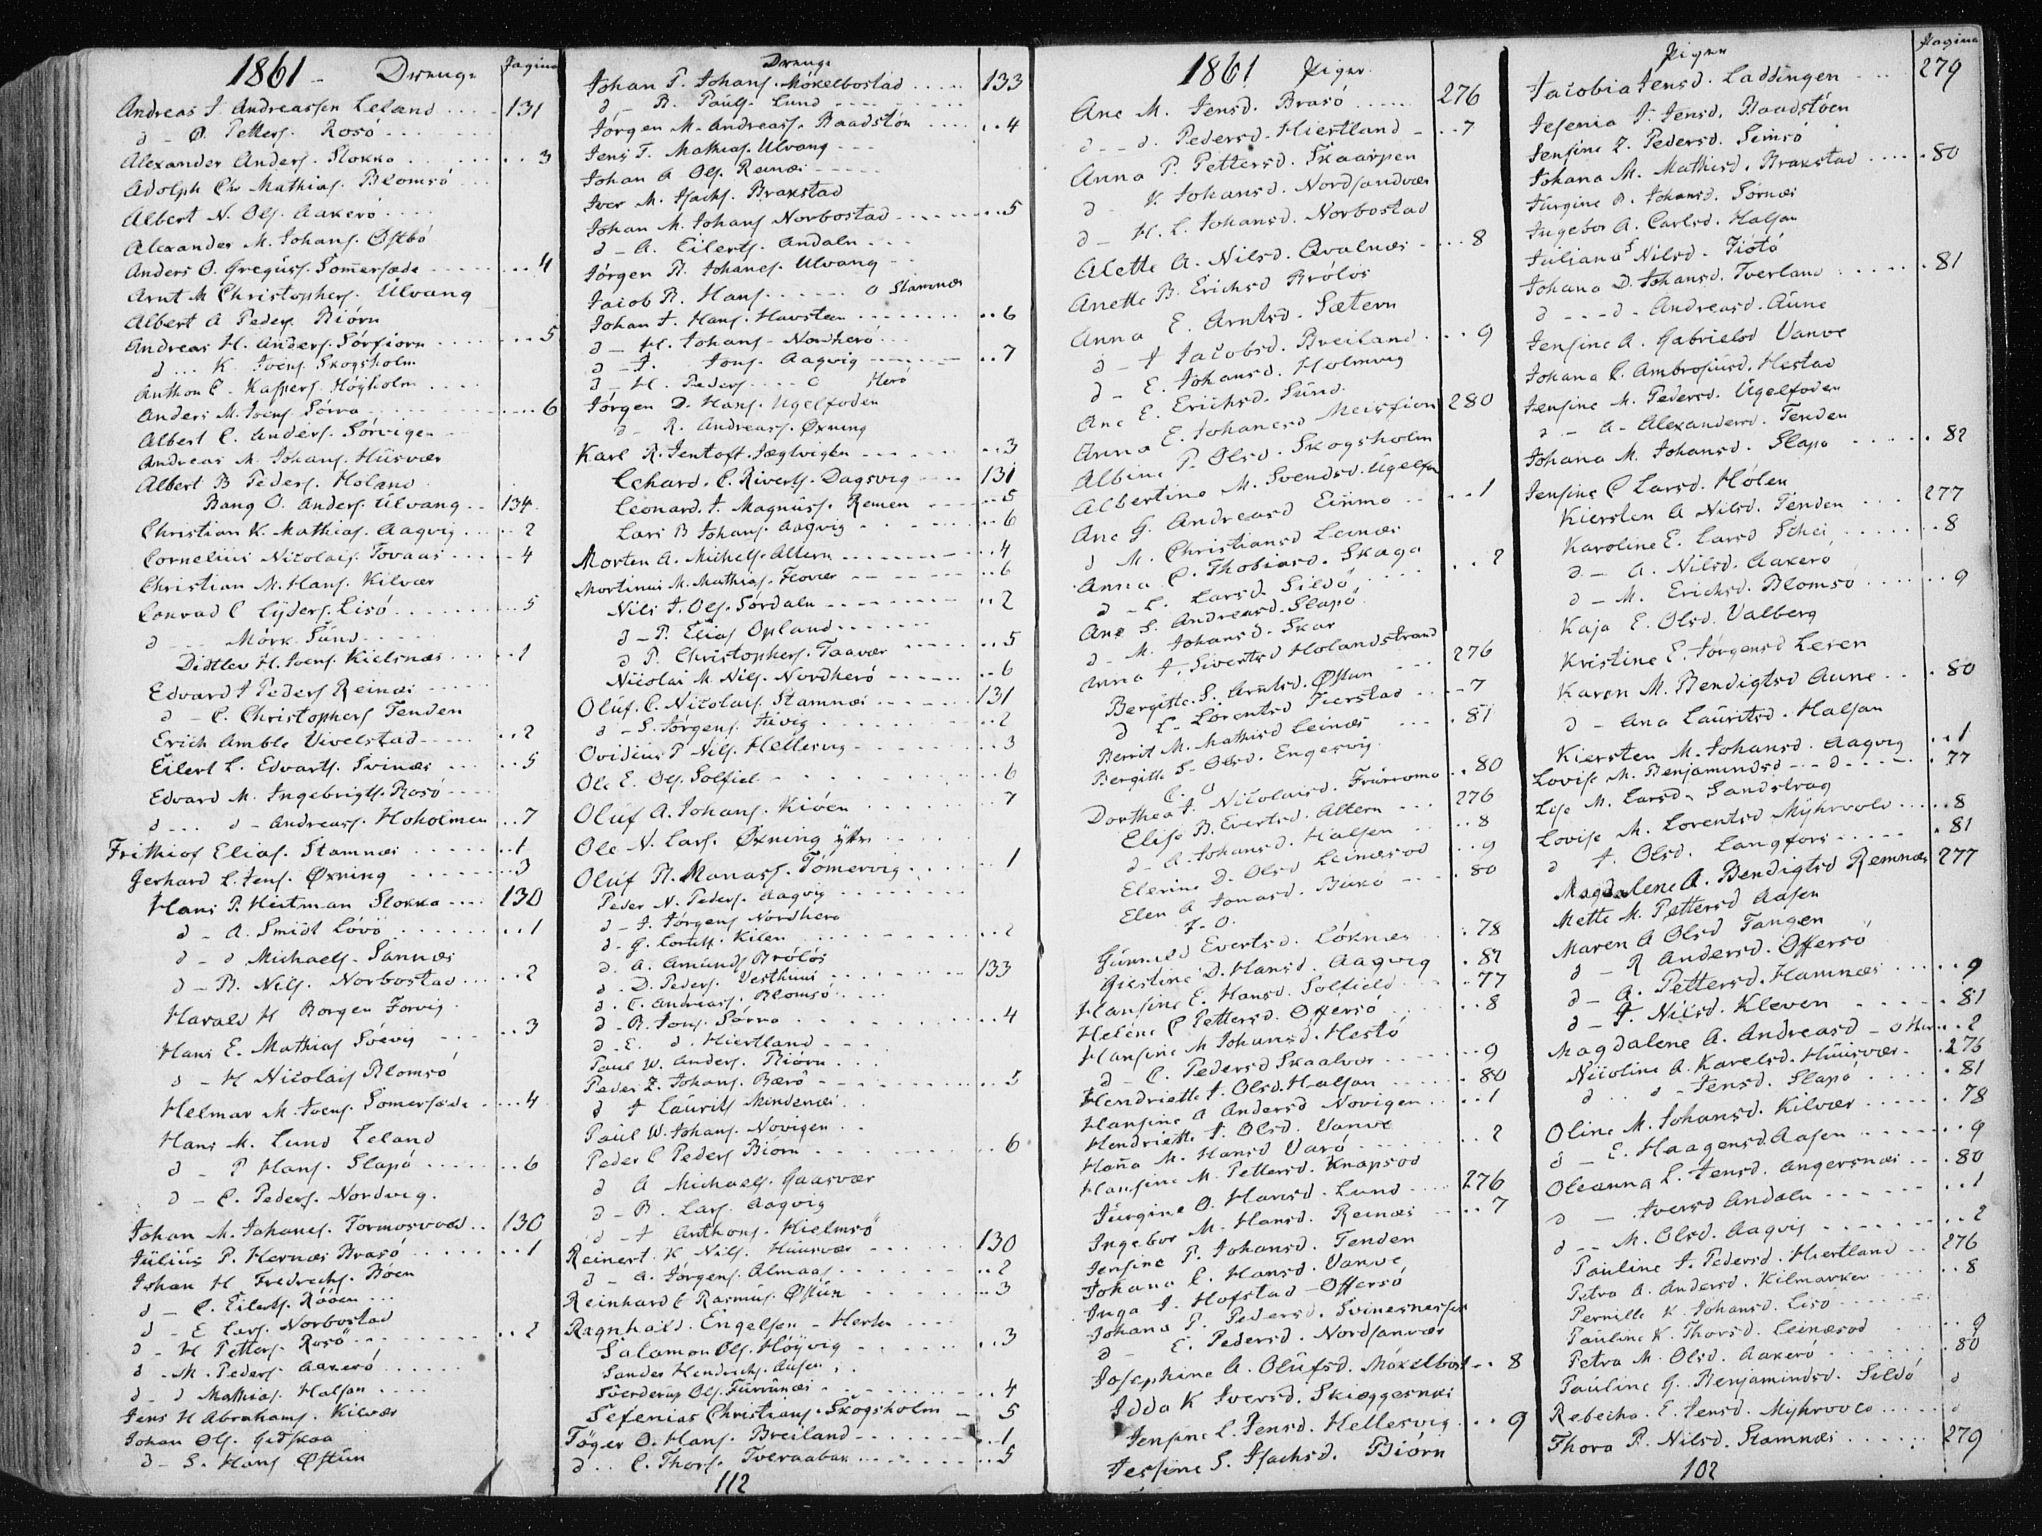 1861 - Drenge Pagina
Andreas J. Andreassen Leland .... 131
d - O. Petters. Rosö ....
Alexander Anders. Slokka ...... 3
Adolph Chr Mathias. Blomsö ...
Albert N. Ols. Aakerö ....
Alexander M. Johans. Østbö
Anders O. Gregûss. Somersæde ..... 4
Arnt M Christophers. Ulvang
Albert A Peders. Biörn
Andreas H. Anders. Sörfiorn ..... 5
d ... K. Joens. Skogsholm
Anthon E. Kaspers. Höyholm ....
Anders M. Joens. Sörra ...... 6
Albert C. Anders. Sörvigen
Andreas M. Johans. Hûsvær
Albert B Peders. Holand
Bang O. Anders. Ulvang .. 134
Christian K. Mathias. Aagvig .... 2
Cornelius Nicolais. Tovaas .... 4
Christian M. Hans. Kilvær
Conrad C Eijders. Lisö ...... 5
d - ... Mörk. Sûnd ....
Ditlev H. Joens. Kielsnæs .... 1
Edvard J Peders Reinæs .....
d - C. Christophers Tenden
Erich Amble Vivelstad ..... 2
Eilert L. Edvarts. Svinæs .... 5
Edvard M. Ingebrigts. Rosö ....
d ... d - Andreass. Hoholmen .. 7
Frithiof Elias. Stamnæs ..... 1
Gerhard L. Jens. Øxning ..... 3
Hans P. Heitman Slokka ... 130
d - A. Smidt Lövö ....... 1
d - d Michaels. Sannæs
d - B. Nils. Norbostad .... 2
Harald H Borgen Forvig
Hans E. Mathias Söevig .... 3
d - H Nicolais Blomsö
Helmar M. Joens. Somersæde .... 4
Hans M. Lund Leland
d - P Hans. Slapö ...... 6
d - C. Peders. Nordvig.
Johan M. Johanes. Tormosvold .. 130
Jûlius P. Hernæs Brasö ...... 1
Johan H Fredrechs. Böen
d - C. Eilerts. Rööen ...
d - E Lars. Norbostad
d - H Petters. Rosö ...... 2
d - M. Peders. Aakerö .....
d - d Mathias. Halsan ....
Jens H Abrahams. Kilvær
Johan Ols. Gidskaa
d - S. Hans Østûn
Drenge
Johan P. Johans. Möxelbostad ..... 133
d - B. Pauls. Lund .......
Jörgen M. Andreass. Baadstön .... 4
Jens T. Mathias. Ulvang ...
Johan A Ols. Reinæs .....
Iver M. Isachs. Braxstad
Johan M. Johans Norbostad ...... 5
d - A. Eilerts. Andaln ...
Jörgen B. Johanes. Ulvang ..
Jacob B. Hans. ..... o Stamnæs
Johan J. Hans. Havsteen ........ 6
d - H. Johans - Nordherö ..
d - J. - Jons. Aagvig ....... 7
d - H. Peders .... o Herö
Jörgen D. Hans. Ugelfoden
d - R. Andreass. Øxning
Karl R. Jentoft. Jægtvigen ...... 3
Lehard. E. Riverts. Dagsvig .... 131
Leonard. J. Magnûss. Remen .... 5
Lars B Johans. Aagvig ...... 6
Morten A. Michels. Altern ....... 4
Mortinus M. Mathias. Flovær ...... 6
Nils J. Ols. Sördaln ....... 2
d - P. Elias Opland .......
d P. Christophers. Taavær ..... 5
Nicolai M. Nils. Nordherö ...... 6
Olûf. C. Nicolais. Stamnæs ...... 131
d - S. Jörgens. Tivig ........ 2
Ovidius P Nils. Hellesvig ....... 3
Ole E. Ols. Solfiel ......... 6
Olûf A. Johans. Kiöen ....... 7
Ole N. Lars. Øxning ytr. ...
Olûf B. Manass. Tömervig .... 1
Peder N. Peders. Aagvig .....
d - J. Jörgens Nordherö
d - G. Lorents. Kilen ........ 2
d. A. Amûnds Brölös
d. D. Peders. Vesthuus ...... 133
d. C. Andreass. Blomsö ....
d. B. Jons. Sörra ......... 4
d. E. d. Hiertland ....
Paul W. Anders. Biörn ...
Peder Z. Johans. Bærö ........ 5
d J Laurits Mindenæs ..
Paul W. Johans. Novigen ..
Peder C Peders Biörn ....... 6
d A Michaels. Gaasvær
d - B. Lars. Aagvig
d - J Anthons. Hielmsö
Reinert. K Nils. Huusvær ...... 130
d - A. Jörgens. Almaas ...... 2
Reinhard C Rasmus. Østûn ..... 3
Ragnhald. Engelsen - Herlen ....
Salamon Ols. Höyvig ...... 3
Sander Hendrichs. Aasen ..
Söverderup Ols. Fûrrûnæs ...... 4
Sefenias Christians. Skogsholm - 5
Töger O. Hans. Breiland ...... 1
d .. C. Thors. Tveraabak ...... 5
112
1861 Piger.
Ane M. Jensd. Brasö ..... 276
d - d. Pedersd. Hiestland ... 7
Anna P. Pettersd. Skaarpen
d - K Johansd. Nordsandvær
d - H. L. Johansd. Norbostad
Alette A. Nilsd. Qvalnæs .... 8
Anette B. Erichsd Brölos
Anna E. Arntsd. Sætern
d - J Jacobsd. Breiland ... 9
d - E. Johansd. Holmvig
Ane E. Erichsd. Sûnd.
Anna E. Johanesd Meisfiord 280
Albine P. Olsd. Skogsholm
Albertine M. Svendsd. Ugelfo
Ane G. Andreasd Einmo .... 1
d M. Christiansd Leinæs
Anna C. Thobiasd. Skaga
d - L. Larsd. Sildö ..... 2
Ane S. Andreasd. Slapö
d - M. Johansd. Skar
Anna J. Sivertsd Holandstrand
Bergitte. S. Arntsd. Østun ... 276
d L - Lorentsd Tierstad ... 7
Berrit M. Mathisd Leinæs ... 81
Bergitte S. Olsd. Engesvig.
C. O
Dorthea J. Nicolaisd. Frûrromo .. 80
Elise B. Evertsd. Altern ... 276
d - A. Johansd. Halsen .... 8
Elerine D. Olsd Leinæsod .. 9
Elen A Jonasd. Bûkö ... 80
F. O.
Gûnnild Evertsd. Löknæs ... 78
Giestine D. Hansd. Aagvig . 82
Hansine E. Hansd. Solfield .. 77
Heléne C Pettersd. Offersö ... 8
Hansine M. Johansd. Hestö
d - C. Pedersd Skaalvær ..... 9
Hendriette J. Olsd. Halsan ..... 80
Hansine A Andersd Novigen ... 1
Hendriette J. Olsd. Vanve
Haña M. Hansd Varö ...... 2
Hansine M. Pettersd. Knapsod
Jûrgine O. Hansd. Lund .... 276
Ingebor M. Hansd. Reinæs .... 7
Jensine P. Johansd. Tenden
Johana C. Hansd. Vanve
Inga J. Hofstad - Offersö
Johana P. Pedersd. Svinesnesset
d - E. Pedersd. Nordsanvær
Josephine A. Olûfsd. Möxelbost .. 8
Idda K Iversd. Skiæggesnæs
Jensine L. Jensd. Hellesvig ... 9
Jensine S. Isachsd. Biörn
Piger Pagina
Jacobia Jensd. Laddingen .... 279
Jesenia J. Jensd. Baadstöen
Jensine Z. Pedersd. Semsö
Johana M. Mathisd. Braxstad .... 80
Jûrgine B. Johansd. Sörnæs
Ingebor A. Carlsd. Halsan
Juliana S Nilsd. Tiötö
Johana D. Johansd. Tverland ..... 81
d ... d - Andreasd. Aûne
Jensine A. Gabrielsd Vanve
Johana C. Ambrosiusd. Hestad
Jensine M. Pedersd. Ugelfoden
d - A - Alexandersd. Tenden
Johana M. Johansd. Slapö ..... 82
Jensine C Larsd. Holen
Kiersten A Nilsd. Tenden ... 277
Karoline E. Larsd Schei .... 8
d - A. Nilsd. Aakerö
d - M. Erichsd. Blomsö ..... 9
Kaja E. Olsd. Valberg
Kristine E. Jörgensd Leren
Karen M. Bendigtsd Aune .. 80
d - Ana Lauritsd. Halsan
Kiersten M. Johansd. Aagvig .. 1
Lovise M. Benjamindsd - - d - - - 77
Lise M. Larsd. Sandstrag
Lovise M. Lorentsd Mÿhrvold .... 8
d J. Olsd. Langfors ...... 81
Magdalene A. Bendigtsd Remnæs 277
Mette M. Pettersd Aasen
Maren A Olsd Tangen
d - R Andersd. Offersö
d - A. Pettersd. Hamnæs ..... 9
d - J. Nilsd. Kleven ..... 81
Magdalene A. Andreasd - o Hu ... 2
Nicoline A. Karelsd. Hûusvær .. 276
d ... d - Jensd. Slapö ..... 81
Oline M. Johansd. Kilvær ..... 78
d - E. Haagensd Aasen ...... 9
Oleanna L. Jensd. Angersnæs ... 80
d - Iversd Andaln ....... 1
d - - M. Olsd. Aagvig ...... 2
Pauline J. Pedersd. Hiertland .. 276
Petra A. Andersd. Kilmarken .... 8
Pernille K. Johansd. Lisö .....
Pauline K. Thorsd. Leinæsod .... 9
Petra M. Olsd. Aakerö ...... 80
Pauline G. Benjamindsd. Sildö d
Rebecka. E. Jensd. Mÿhrvold ..... d
Thora B. Nilsd. Stamnæs ...... 279
102